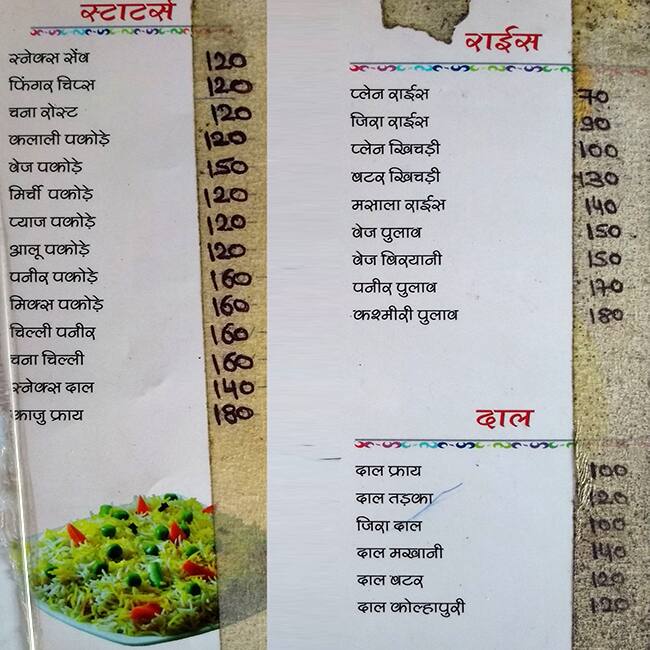 स्टाटर्स
स्नेक्स सेंव 120
फिंगर चिप्स 120
चना रोस्ट 120
कलाली पकोड़े 120
वेज पकोड़े 150
मिर्ची पकोड़े 120
प्याज पकोड़े 120
आलू पकोड़े 120
पनीर पकोड़े 160
मिक्स पकोड़े 160
चिल्ली पनीर 160
चना चिल्ली 160
स्नेक्स दाल 140
काजु फ्राय 180
राईस
प्लेन राईस 70
जिरा राईस 90
प्लेन खिचड़ी 100
बटर खिचड़ी 130
मसाला राईस 140
वेज पुलाव 150
वेज बिरयानी 150
पनीर पुलाव 170
कश्मीरी पुलाव 180
दाल
दाल फ्राय 100
दाल तड़का 120
जिरा दाल 100
दाल मखानी 140
दाल बटर 120
दाल कोल्हापुरी 120